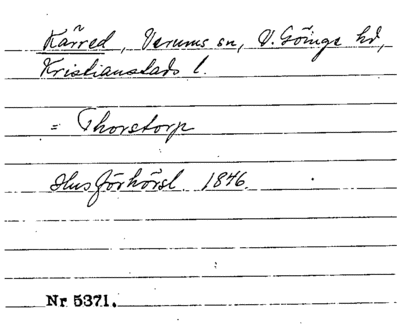 Kärred, Verums sn, V. Göinge hd,
Kristianstads l.
= Thorstorp
Husförhörsl. 1846.
Nr 5371.